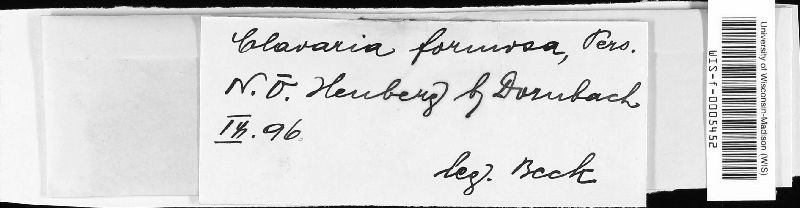 Clavaria formosa, Pers.
N. Ö. Heuberg b/ Dornbach
IX. 96.
leg. Beck
University of Wisconsin-Madison (WIS)
WIS-f-0005452